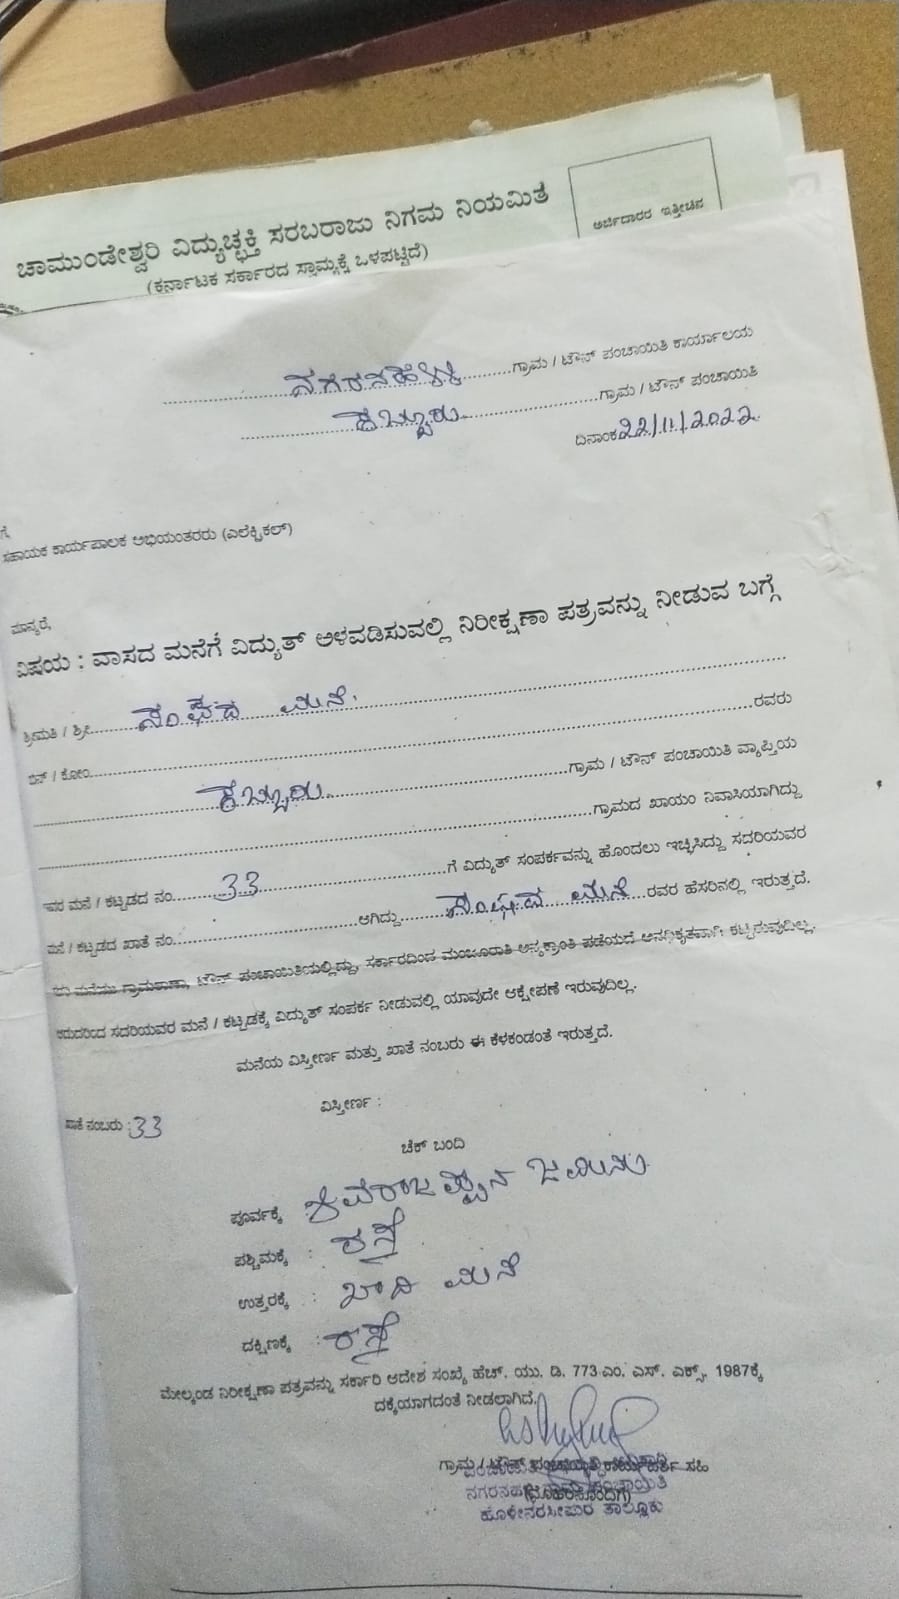 ಚಾಮುಂಡೇಶ್ವರಿ ವಿದ್ಯುಚ್ಛಕ್ತಿ ಸರಬರಾಜು ನಿಗಮ ನಿಯಮಿತ
(ಕರ್ನಾಟಕ ಸರ್ಕಾರದ ಸ್ವಾಮ್ಯಕ್ಕೆ ಒಳಪಟ್ಟಿದೆ)
ಅರ್ಜಿದಾರರ ಇತ್ತೀಚಿನ
ನಗರನಹಳ್ಳಿ ಗ್ರಾಮ / ಟೌನ್ ಪಂಚಾಯಿತಿ ಕಾರ್ಯಾಲಯ
ಗ್ರಾಮ / ಟೌನ್ ಪಂಚಾಯಿತಿ
ದಿನಾಂಕ 22/11/2022
ಗೆ,
ಸಹಾಯಕ ಕಾರ್ಯಪಾಲಕ ಅಭಿಯಂತರರು (ಎಲೆಕ್ಟ್ರಿಕಲ್)
ಮಾನ್ಯರೆ,
ವಿಷಯ : ವಾಸದ ಮನೆಗೆ ವಿದ್ಯುತ್ ಅಳವಡಿಸುವಲ್ಲಿ ನಿರೀಕ್ಷಣಾ ಪತ್ರವನ್ನು ನೀಡುವ ಬಗ್ಗೆ
ಶ್ರೀಮತಿ / ಶ್ರೀ ಸಂಘದ ಮನೆ
ಬಿನ್ / ಕೋಂ ರವರು
ಗ್ರಾಮ / ಟೌನ್ ಪಂಚಾಯಿತಿ ವ್ಯಾಪ್ತಿಯ
ಗ್ರಾಮದ ಖಾಯಂ ನಿವಾಸಿಯಾಗಿದ್ದು
ಇವರ ಮನೆ / ಕಟ್ಟಡದ ನಂ. 33 ಗೆ ವಿದ್ಯುತ್ ಸಂಪರ್ಕವನ್ನು ಹೊಂದಲು ಇಚ್ಛಿಸಿದ್ದು ಸದರಿಯವರ
ಮನೆ / ಕಟ್ಟಡದ ಖಾತೆ ನಂ. ಆಗಿದ್ದು ಸಂಘದ ಮನೆ ರವರ ಹೆಸರಿನಲ್ಲಿ ಇರುತ್ತದೆ.
ಈ ಮನೆಯು ಗ್ರಾಮಠಾಣಾ, ಟೌನ್ ಪಂಚಾಯಿತಿಯಲ್ಲಿದ್ದು, ಸರ್ಕಾರದಿಂದ ಮಂಜೂರಾತಿ ಅನ್ಯಕ್ರಾಂತಿ ಪಡೆಯದೆ ಅನಧಿಕೃತವಾಗಿ ಕಟ್ಟಿರುವುದಿಲ್ಲ.
ಆದುದರಿಂದ ಸದರಿಯವರ ಮನೆ / ಕಟ್ಟಡಕ್ಕೆ ವಿದ್ಯುತ್ ಸಂಪರ್ಕ ನೀಡುವಲ್ಲಿ ಯಾವುದೇ ಆಕ್ಷೇಪಣೆ ಇರುವುದಿಲ್ಲ.
ಮನೆಯ ವಿಸ್ತೀರ್ಣ ಮತ್ತು ಖಾತೆ ನಂಬರು ಈ ಕೆಳಕಂಡಂತೆ ಇರುತ್ತದೆ.
ವಿಸ್ತೀರ್ಣ :
ಖಾತೆ ನಂಬರು : 33
ಚೆಕ್ ಬಂದಿ
ಪೂರ್ವಕ್ಕೆ : ಜಮೀನು
ಪಶ್ಚಿಮಕ್ಕೆ : ರಸ್ತೆ
ಉತ್ತರಕ್ಕೆ : ಖಾಲಿ ಮನೆ
ದಕ್ಷಿಣಕ್ಕೆ : ರಸ್ತೆ
ಮೇಲ್ಕಂಡ ನಿರೀಕ್ಷಣಾ ಪತ್ರವನ್ನು ಸರ್ಕಾರಿ ಆದೇಶ ಸಂಖ್ಯೆ ಹೆಚ್. ಯು. ಡಿ. 773 ಎಂ. ಎಸ್. ಎಕ್ಸ್. 1987ಕ್ಕೆ
ದಕ್ಕೆಯಾಗದಂತೆ ನೀಡಲಾಗಿದೆ.
ಗ್ರಾಮ / ಟೌನ್ ಪಂಚಾಯಿತಿ ಸಹಿ
(ಮೊಹರಿನೊಂದಿಗೆ)
ಹೊಳೇನರಸೀಪುರ ತಾಲ್ಲೂಕು